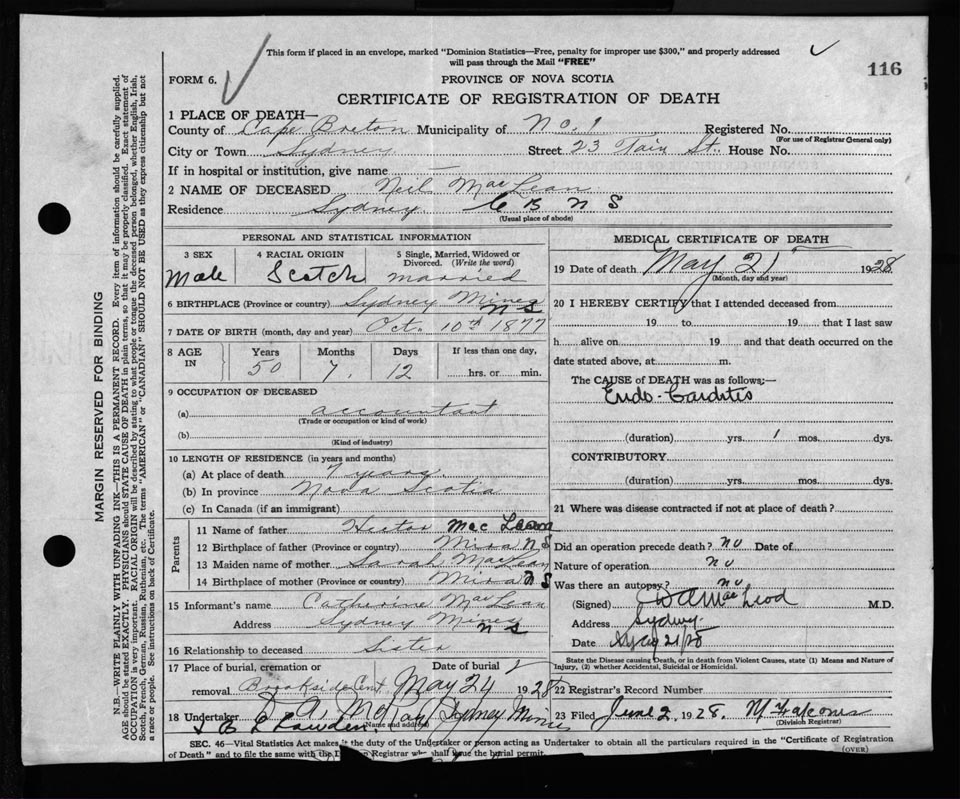 This form if placed in an envelope, marked "Dominion Statistics—Free, penalty for improper use $300," and properly addressed
will pass through the Mail "FREE"
116
FORM 6.
PROVINCE OF NOVA SCOTIA
CERTIFICATE OF REGISTRATION OF DEATH
1 PLACE OF DEATH—
County of Cape Breton Municipality of No. 1 Registered No.
(For use of Registrar General only)
City or Town Sydney Street 23 Tain St. House No.
If in hospital or institution, give name —
2 NAME OF DECEASED Neil MacLean
Residence Sydney C B N S
(Usual place of abode)
PERSONAL AND STATISTICAL INFORMATION
3 SEX 4 RACIAL ORIGIN 5 Single, Married, Widowed or
Divorced. (Write the word)
Male Scotch married
6 BIRTHPLACE (Province or country) Sydney Mines
N S
7 DATE OF BIRTH (month, day and year) Oct. 10th 1877
8 AGE IN Years Months Days If less than one day,
50 7. 12 hrs. or min.
9 OCCUPATION OF DECEASED
(a) accountant
(Trade or occupation or kind of work)
(b)
(Kind of industry)
10 LENGTH OF RESIDENCE (in years and months)
(a) At place of death 7 years
(b) In province Nova Scotia
(c) In Canada (if an immigrant)
Parents
11 Name of father Hector MacLean
12 Birthplace of father (Province or country) Mira N S
13 Maiden name of mother Sarah MacLean
14 Birthplace of mother (Province or country) Mira N S
15 Informant's name Catherine MacLean
Address Sydney Mines
N S
16 Relationship to deceased Sister
17 Place of burial, cremation or Date of burial
removal Brookside Cent. May 24 1928
18 Undertaker A. McKay Sydney Mines
(Name and address)
MEDICAL CERTIFICATE OF DEATH
19 Date of death May 21 1928
(Month, day and year)
20 I HEREBY CERTIFY that I attended deceased from
19 to 19 that I last saw
h alive on 19 and that death occurred on the
date stated above, at m.
The CAUSE of DEATH was as follows;—
Endo-Carditis
(duration) yrs. 1 mos. dys.
CONTRIBUTORY
(duration) yrs. mos. dys.
21 Where was disease contracted if not at place of death?
Did an operation precede death? no Date of
Nature of operation no
Was there an autopsy? no
(Signed) MacLeod M.D.
Address Sydney.
Date May 21/28
State the Disease causing Death, or in death from Violent Causes, state (1) Means and Nature of
Injury, (2) whether Accidental, Suicidal or Homicidal.
22 Registrar's Record Number
23 Filed June 2, 1928.
(Division Registrar)
SEC. 46—Vital Statistics Act makes it the duty of the Undertaker or person acting as Undertaker to obtain all the particulars required in the "Certificate of Registration
of Death" and to file the same with the Division Registrar who shall issue the burial permit.
(OVER)
MARGIN RESERVED FOR BINDING
N.B.—WRITE PLAINLY WITH UNFADING INK—THIS IS A PERMANENT RECORD. Every item of information should be carefully supplied.
AGE should be stated EXACTLY. PHYSICIANS should STATE CAUSE OF DEATH in plain terms, so that it may be properly classified. Exact statement of
OCCUPATION is very important. RACIAL ORIGIN will be described by stating to what people or tongue the deceased person belonged, whether English, Irish,
Scotch, French, German, Russian, Ruthenian, etc. The terms "AMERICAN" or "CANADIAN" SHOULD NOT BE USED as they express citizenship but not
a race or people. See instructions on back of Certificate.